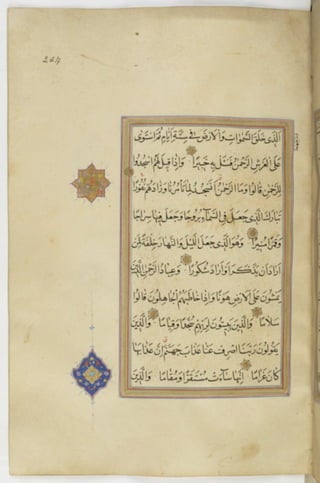 ۲۶۴
الَّذِى خَلَقَ السَّمٰوَاتِ وَالْاَرْضَ فِى سِتَّةِ اَيَّامٍ ثُمَّ اسْتَوٰى
عَلَى الْعَرْشِ الرَّحْمٰنُ فَسْئَلْ بِهٖ خَبِيرًا وَاِذَا قِيلَ لَهُمُ اسْجُدُوا
لِلرَّحْمٰنِ قَالُوا وَمَا الرَّحْمٰنُ اَنَسْجُدُ لِمَا تَأْمُرُنَا وَزَادَهُمْ نُفُورًا
تَبَارَكَ الَّذِى جَعَلَ فِى السَّمَآءِ بُرُوجًا وَجَعَلَ فِيهَا سِرَاجًا
وَقَمَرًا مُنِيرًا وَهُوَ الَّذِى جَعَلَ الَّيْلَ وَالنَّهَارَ خِلْفَةً لِمَنْ
اَرَادَ اَنْ يَذَّكَّرَ اَوْ اَرَادَ شُكُورًا وَعِبَادُ الرَّحْمٰنِ الَّذِينَ
يَمْشُونَ عَلَى الْاَرْضِ هَوْنًا وَاِذَا خَاطَبَهُمُ الْجَاهِلُونَ قَالُوا
سَلَامًا وَالَّذِينَ يَبِيتُونَ لِرَبِّهِمْ سُجَّدًا وَقِيَامًا وَالَّذِينَ
يَقُولُونَ رَبَّنَا اصْرِفْ عَنَّا عَذَابَ جَهَنَّمَ اِنَّ عَذَابَهَا
كَانَ غَرَامًا اِنَّهَا سَآءَتْ مُسْتَقَرًّا وَمُقَامًا وَالَّذِينَ